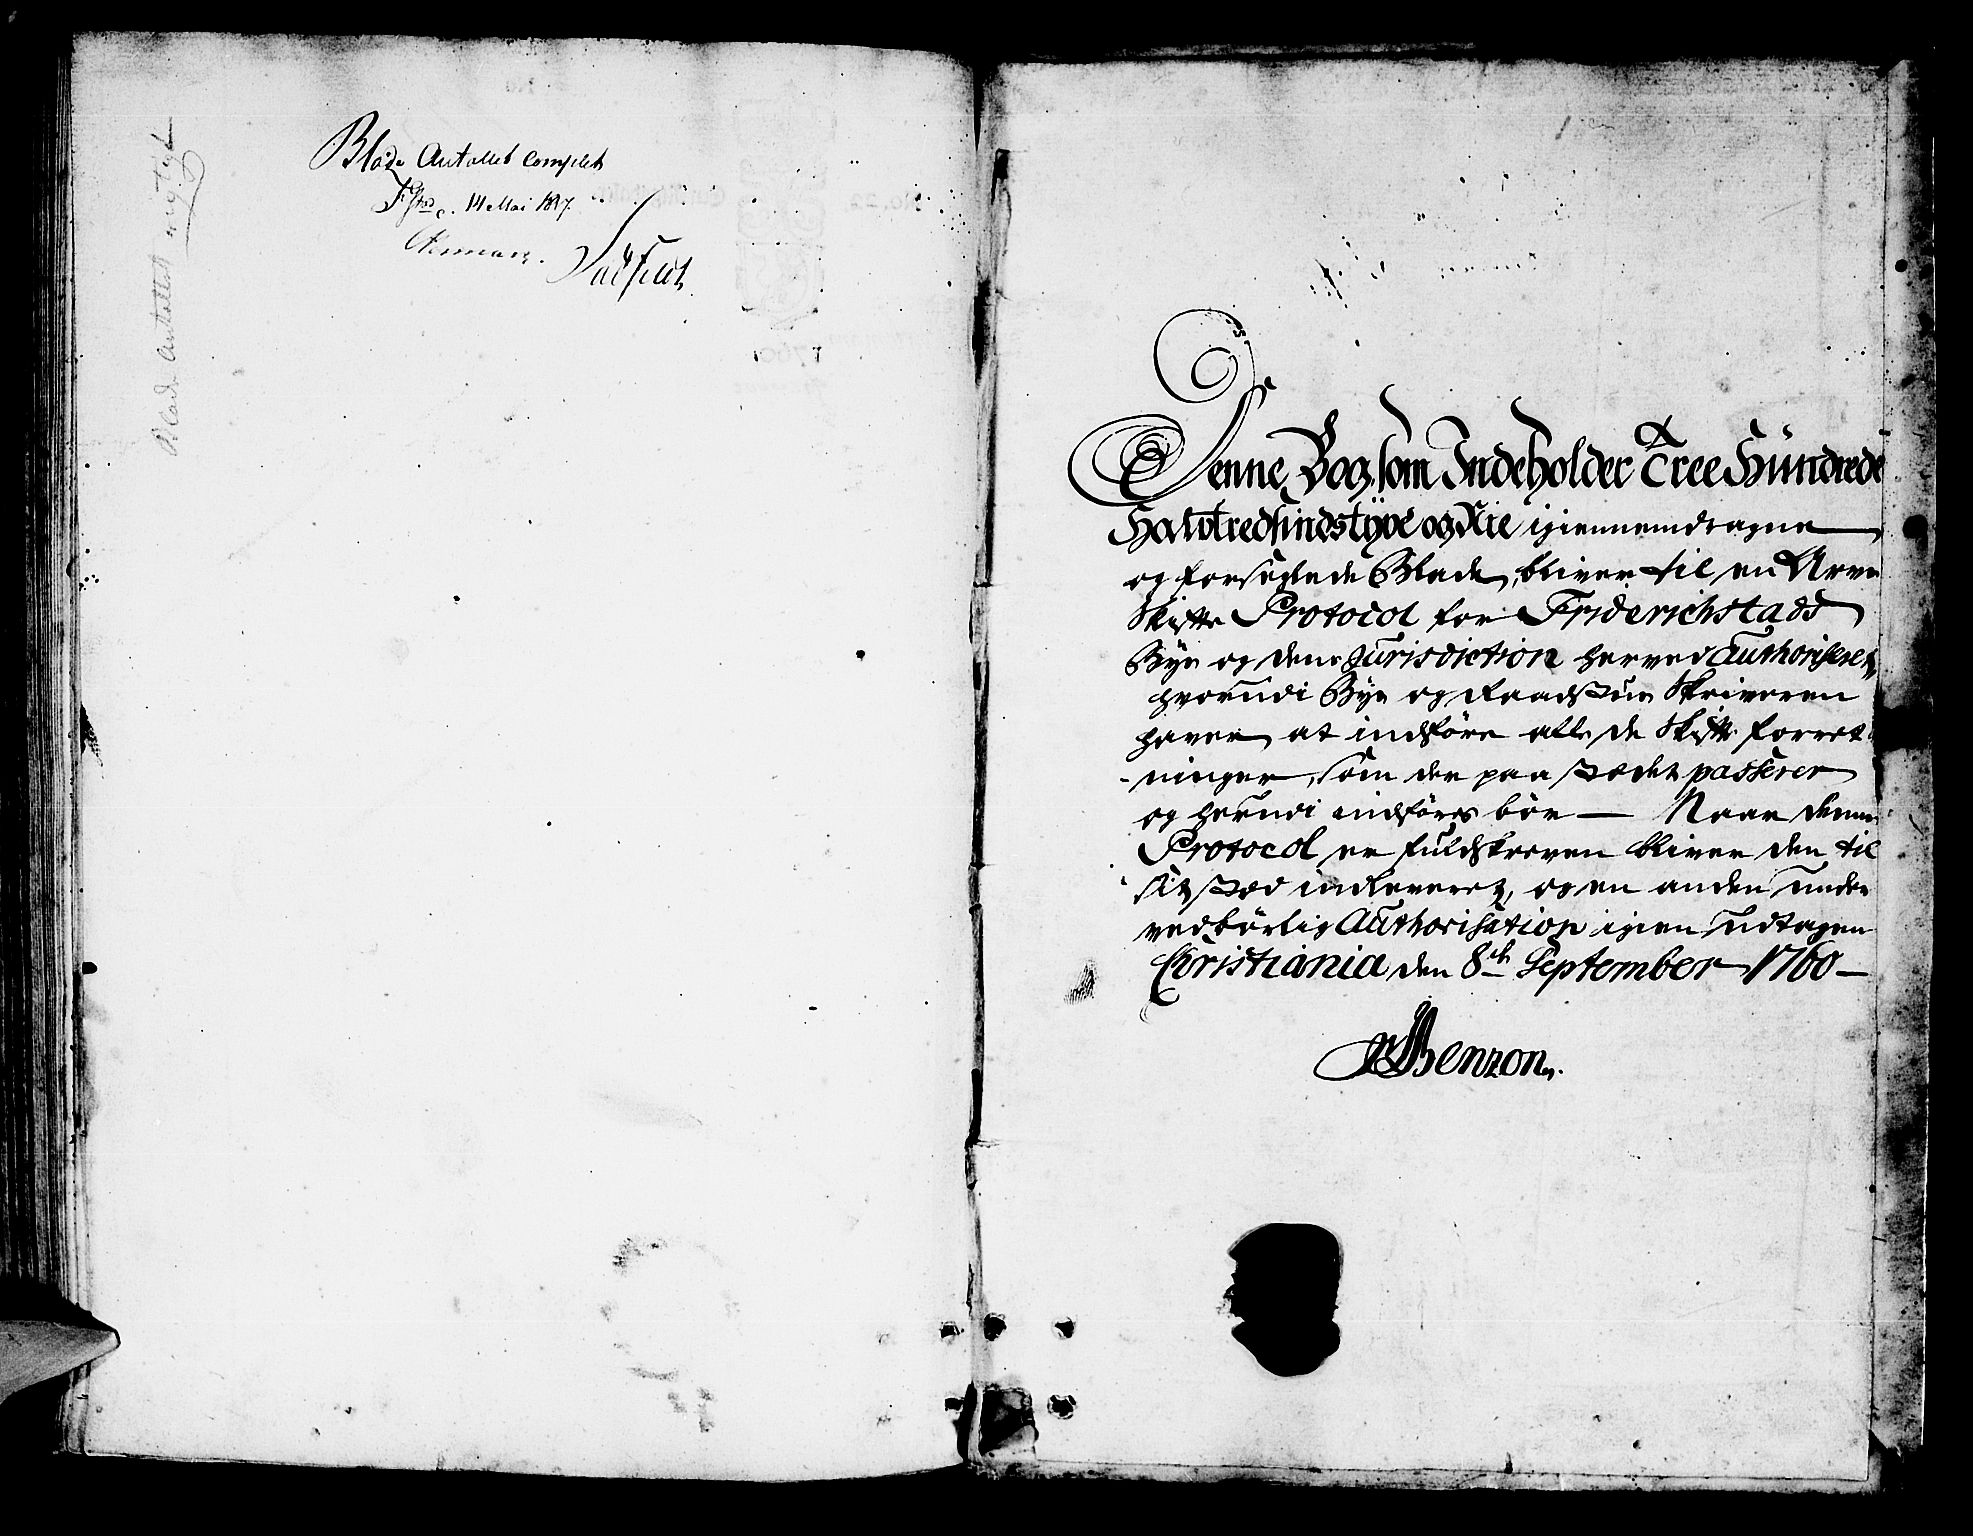 Blade Antallet complet
F.stad d. 14 Mai 1817.
Blade Antallet rigtigt
Denne Bog, som Indeholder Tree Hundrede
Halvtredsindstyve og Nie igiennemdragne
og forseglede Blade, bliver til en Arve
Skifte Protocol for Friderichstads
Bye og dens Jurisdiction herved Authoriseret,
hvorudi Bye og Raadstue Skriveren
haver at indføre alle de Skifte forret-
ninger, som der paa Stædet passerer
og herudi indføres bör — Naar denne
Protocol er fuldskreven bliver den til
sit Stæd indleveret, og en anden under
vedbörlig Authorisation igien udtagen
Christiania den 8de September 1760 —
Benzon.